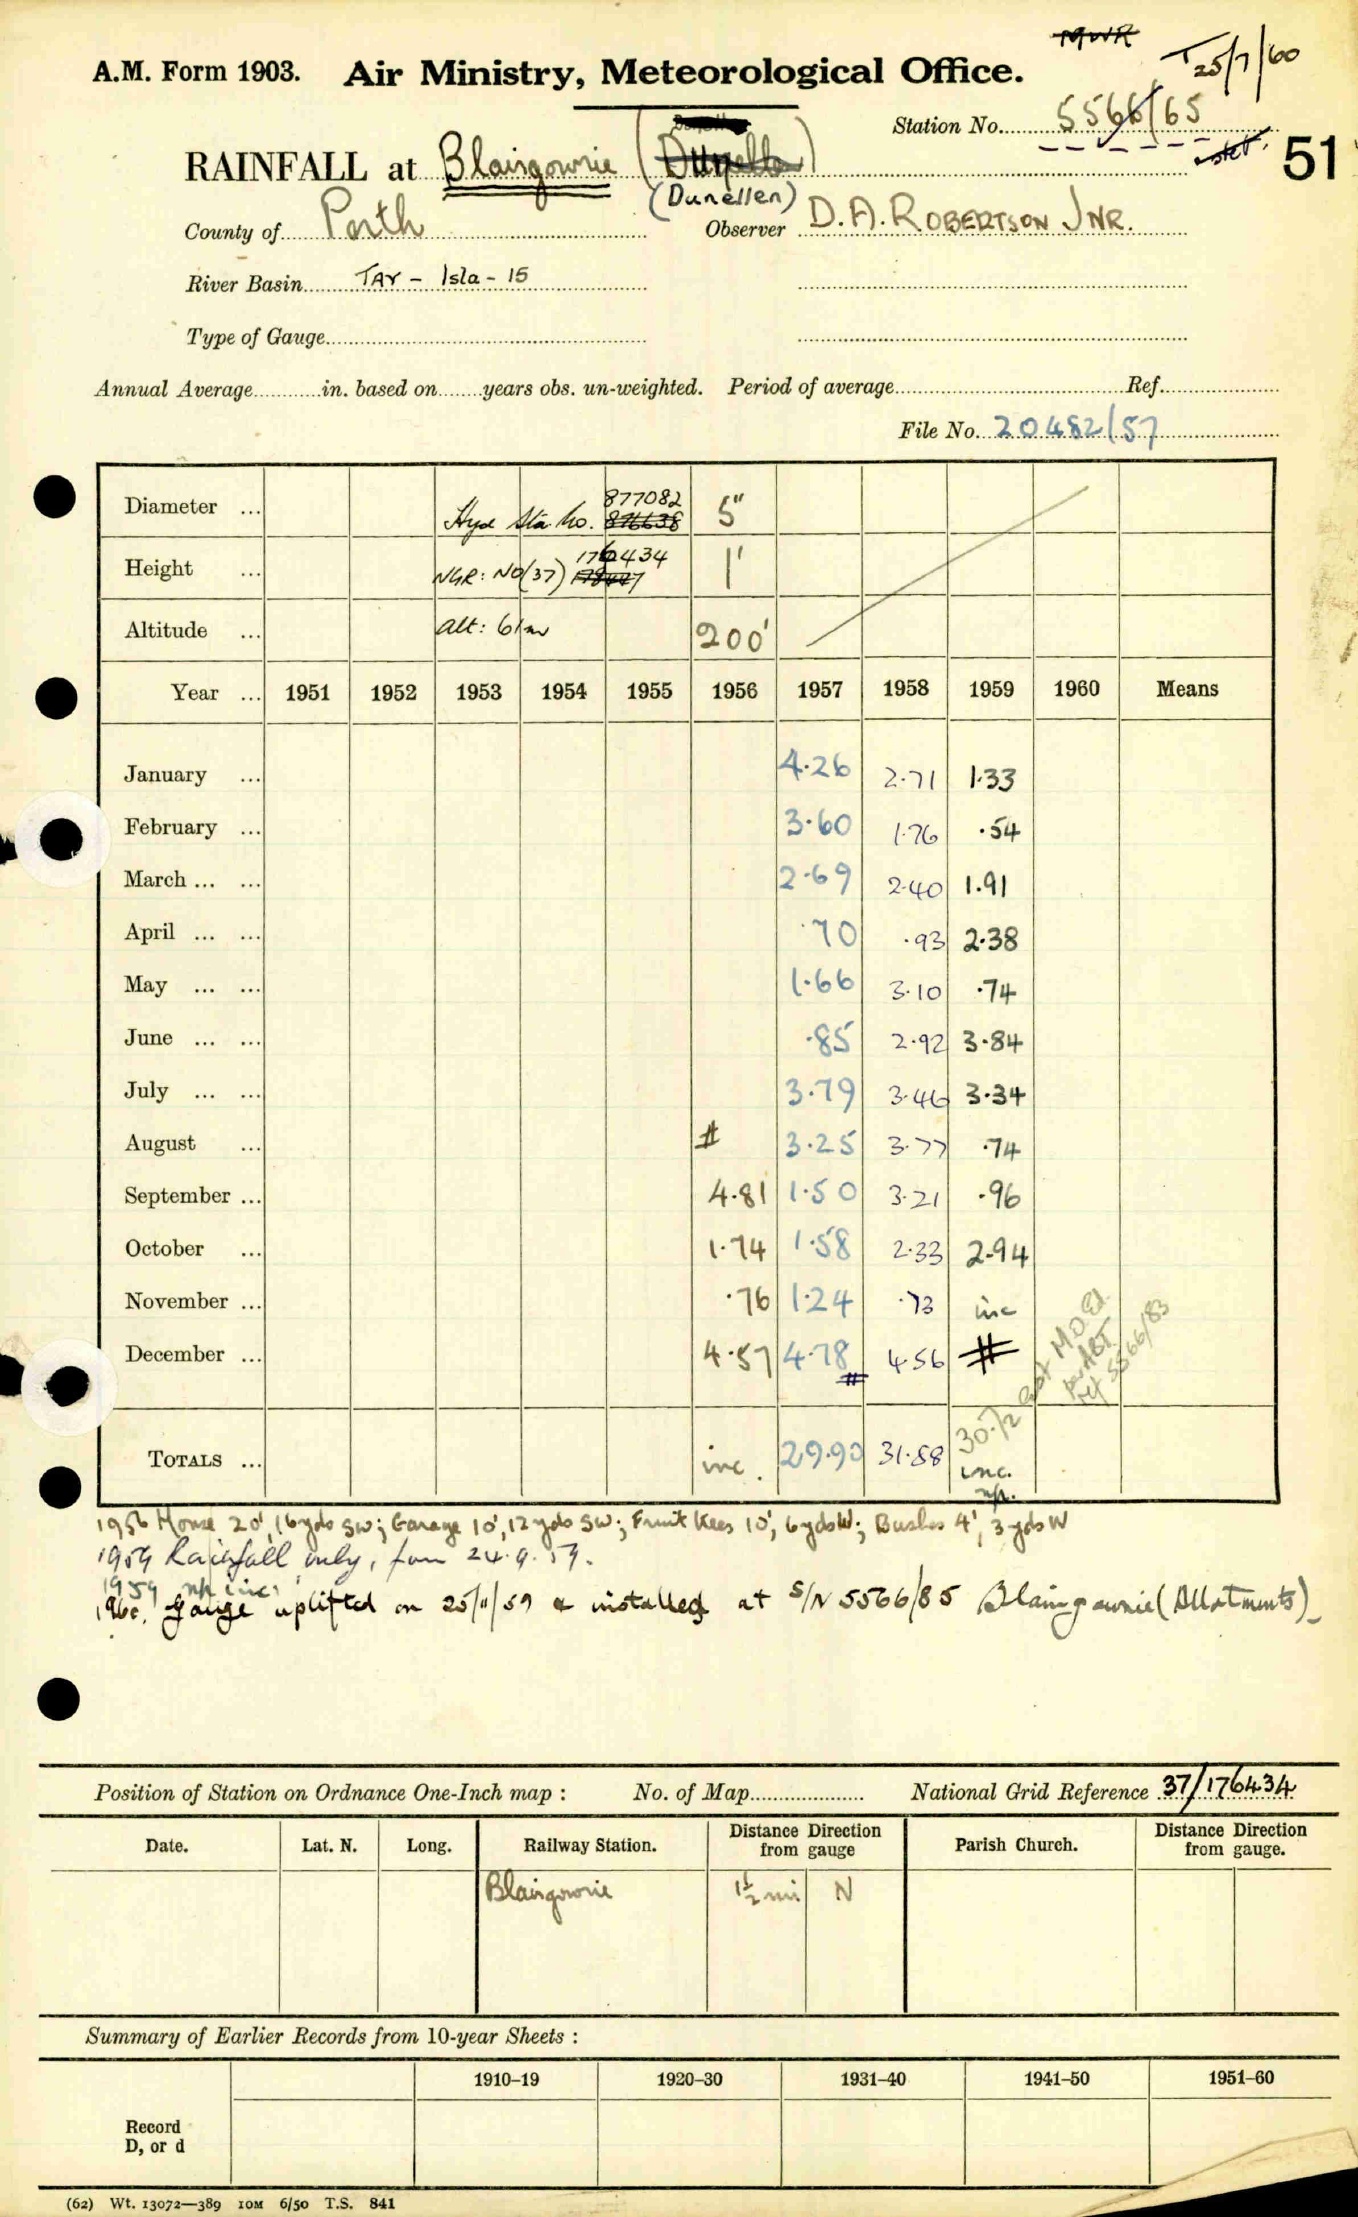 A.M. Form 1903. Air Ministry, Meteorological Office.
T 25/7/60
Station No. 5566/65
stet.
51
RAINFALL at Blairgowrie
(Dunellen)
County of Perth Observer D. A. ROBERTSON JNR.
River Basin TAY - Isla - 15
Type of Gauge
Annual Average in. based on years obs. un-weighted. Period of average Ref.
File No. 20482/57
Diameter ... Hyd Sta No. 877082 5"
Height ... NGR: NO(37) 176434 1'
Altitude ... Alt: 61m 200'
Year ... 1951 1952 1953 1954 1955 1956 1957 1958 1959 1960 Means
January ... 4.26 2.71 1.33
February ... 3.60 1.76 .54
March ... ... 2.69 2.40 1.91
April ... ... .70 .93 2.38
May ... ... 1.66 3.10 .74
June ... ... .85 2.92 3.84
July ... ... 3.79 3.46 3.34
August ... # 3.25 3.77 .74
September ... 4.81 1.50 3.21 .96
October ... 1.74 1.58 2.33 2.94
November ... .76 1.24 .73 inc
December ... 4.57 4.78 # 4.56 #
est M.O Ed.
per ABT
ref 5566/83
TOTALS ... inc. 29.90 31.88 30.72
inc.
1956 House 20', 16yds SW; Garage 10', 12yds SW; Fruit trees 10', 6yds W; Bushes 4', 3yds W
1959 Rainfall only, from 24.9.59.
1959 inc.
1960. Gauge uplifted on 25/11/59 & installed at S/N 5566/85 Blairgowrie (Allotments)
Position of Station on Ordnance One-Inch map : No. of Map National Grid Reference 37/176434
Date. Lat. N. Long. Railway Station. Distance Direction from gauge Parish Church. Distance Direction from gauge.
Blairgowrie 1½ mi N
Summary of Earlier Records from 10-year Sheets :
1910–19 1920–30 1931–40 1941–50 1951–60
Record
D, or d
(62) Wt. 13072—389 10M 6/50 T.S. 841